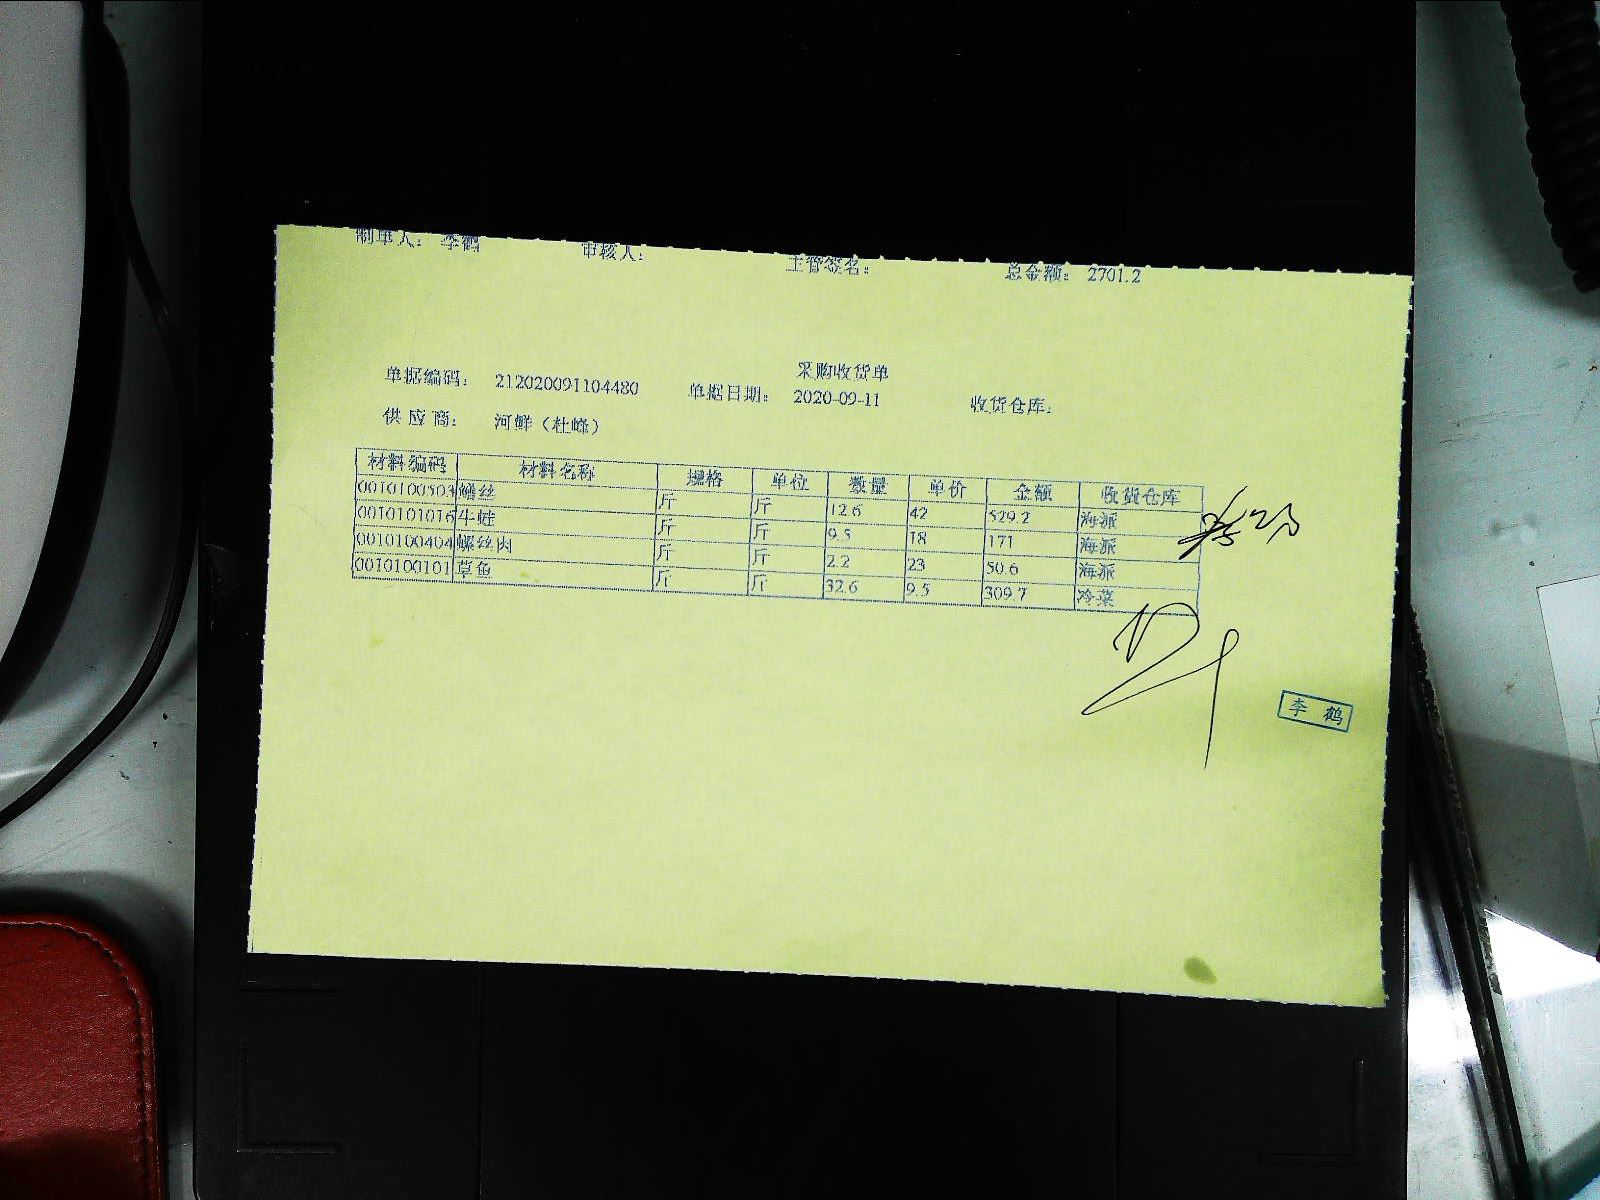 制单人: 李鹤 审核人: 主管签名: 总金额: 2701.2
采购收货单
单据编码: 212020091104480 单据日期: 2020-09-11 收货仓库:
供应商: 河鲜（杜峰）
材料编码 材料名称 规格 单位 数量 单价 金额 收货仓库
0010100503 鳝丝 斤 斤 12.6 42 529.2 海派
0010101016 牛蛙 斤 斤 9.5 18 171 海派
0010100404 螺丝肉 斤 斤 2.2 23 50.6 海派
0010100101 草鱼 斤 斤 32.6 9.5 309.7 冷菜
李鹤